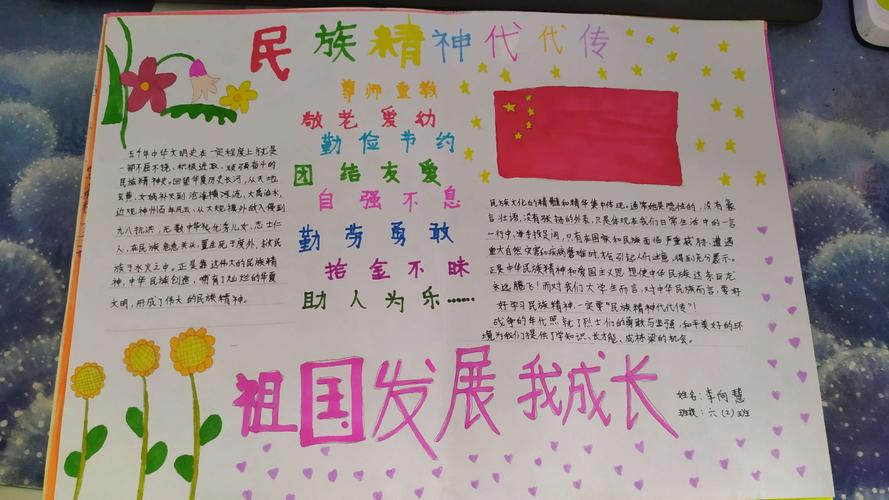 民族精神代代传
尊师重教
敬老爱幼
勤俭节约
团结友爱
自强不息
勤劳勇敢
拾金不昧
助人为乐……
五千年中华文明史在一定程度上就是
一部不屈不挠、积极进取、顽强奋斗的
民族精神史。回望华夏历史长河，从天地
玄黄、女娲补天到 沧海横流，大禹治水，
近观神州百年风云，从大规模外敌入侵到
九八抗洪，无数中华优秀儿女、志士仁
人，在民族危急关头，置生死于度外，救民
族于水火之中。正是靠这伟大的民族精
神，中华民族创造，哺育了灿烂的华夏
文明，形成了伟大的民族精神。
民族文化的精髓和精华集中体现。通常她是隐性的，没有豪
言壮语，没有张扬的外表，只是体现在我们日常生活中的一言
一行中，举手投足间，只有在国家和民族面临严重威胁、遭遇
重大自然灾害和疾病磨难时，才会引起人们注意，得到充分展示。
正是中华民族精神和爱国主义思想使中华民族这条巨龙
永远腾飞！而对我们大学生而言，对中华民族而言，要好
好学习民族精神，一定要“民族精神代代传”！
战争的年代照 了烈士们的勇敢与坚强，和平美好的环
境为我们提供了学知识、长才能、成栋梁的机会。
祖国发展 我成长
姓名：李向慧
班级：六（2）班